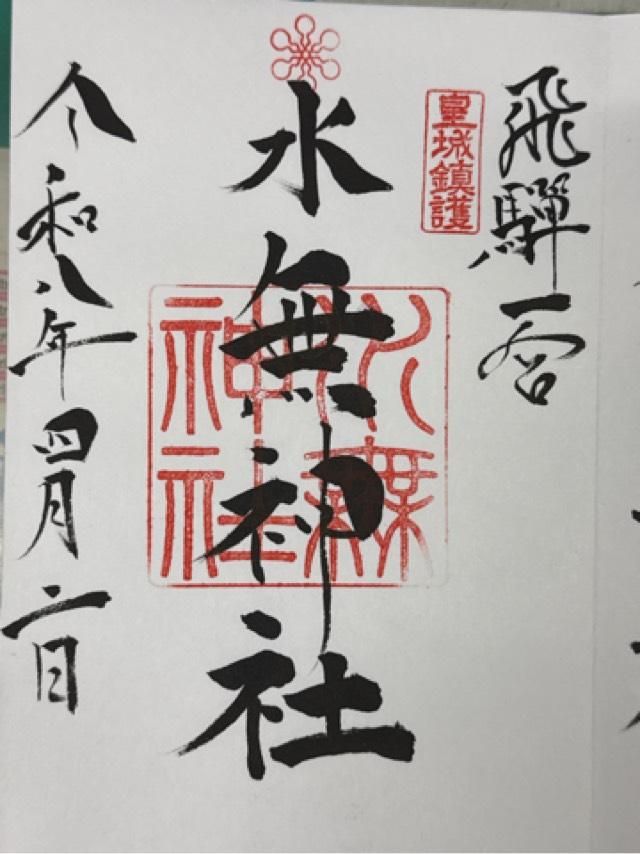 飛騨一宮
皇城鎮護
水無神社
水無神社
令和八年四月二日